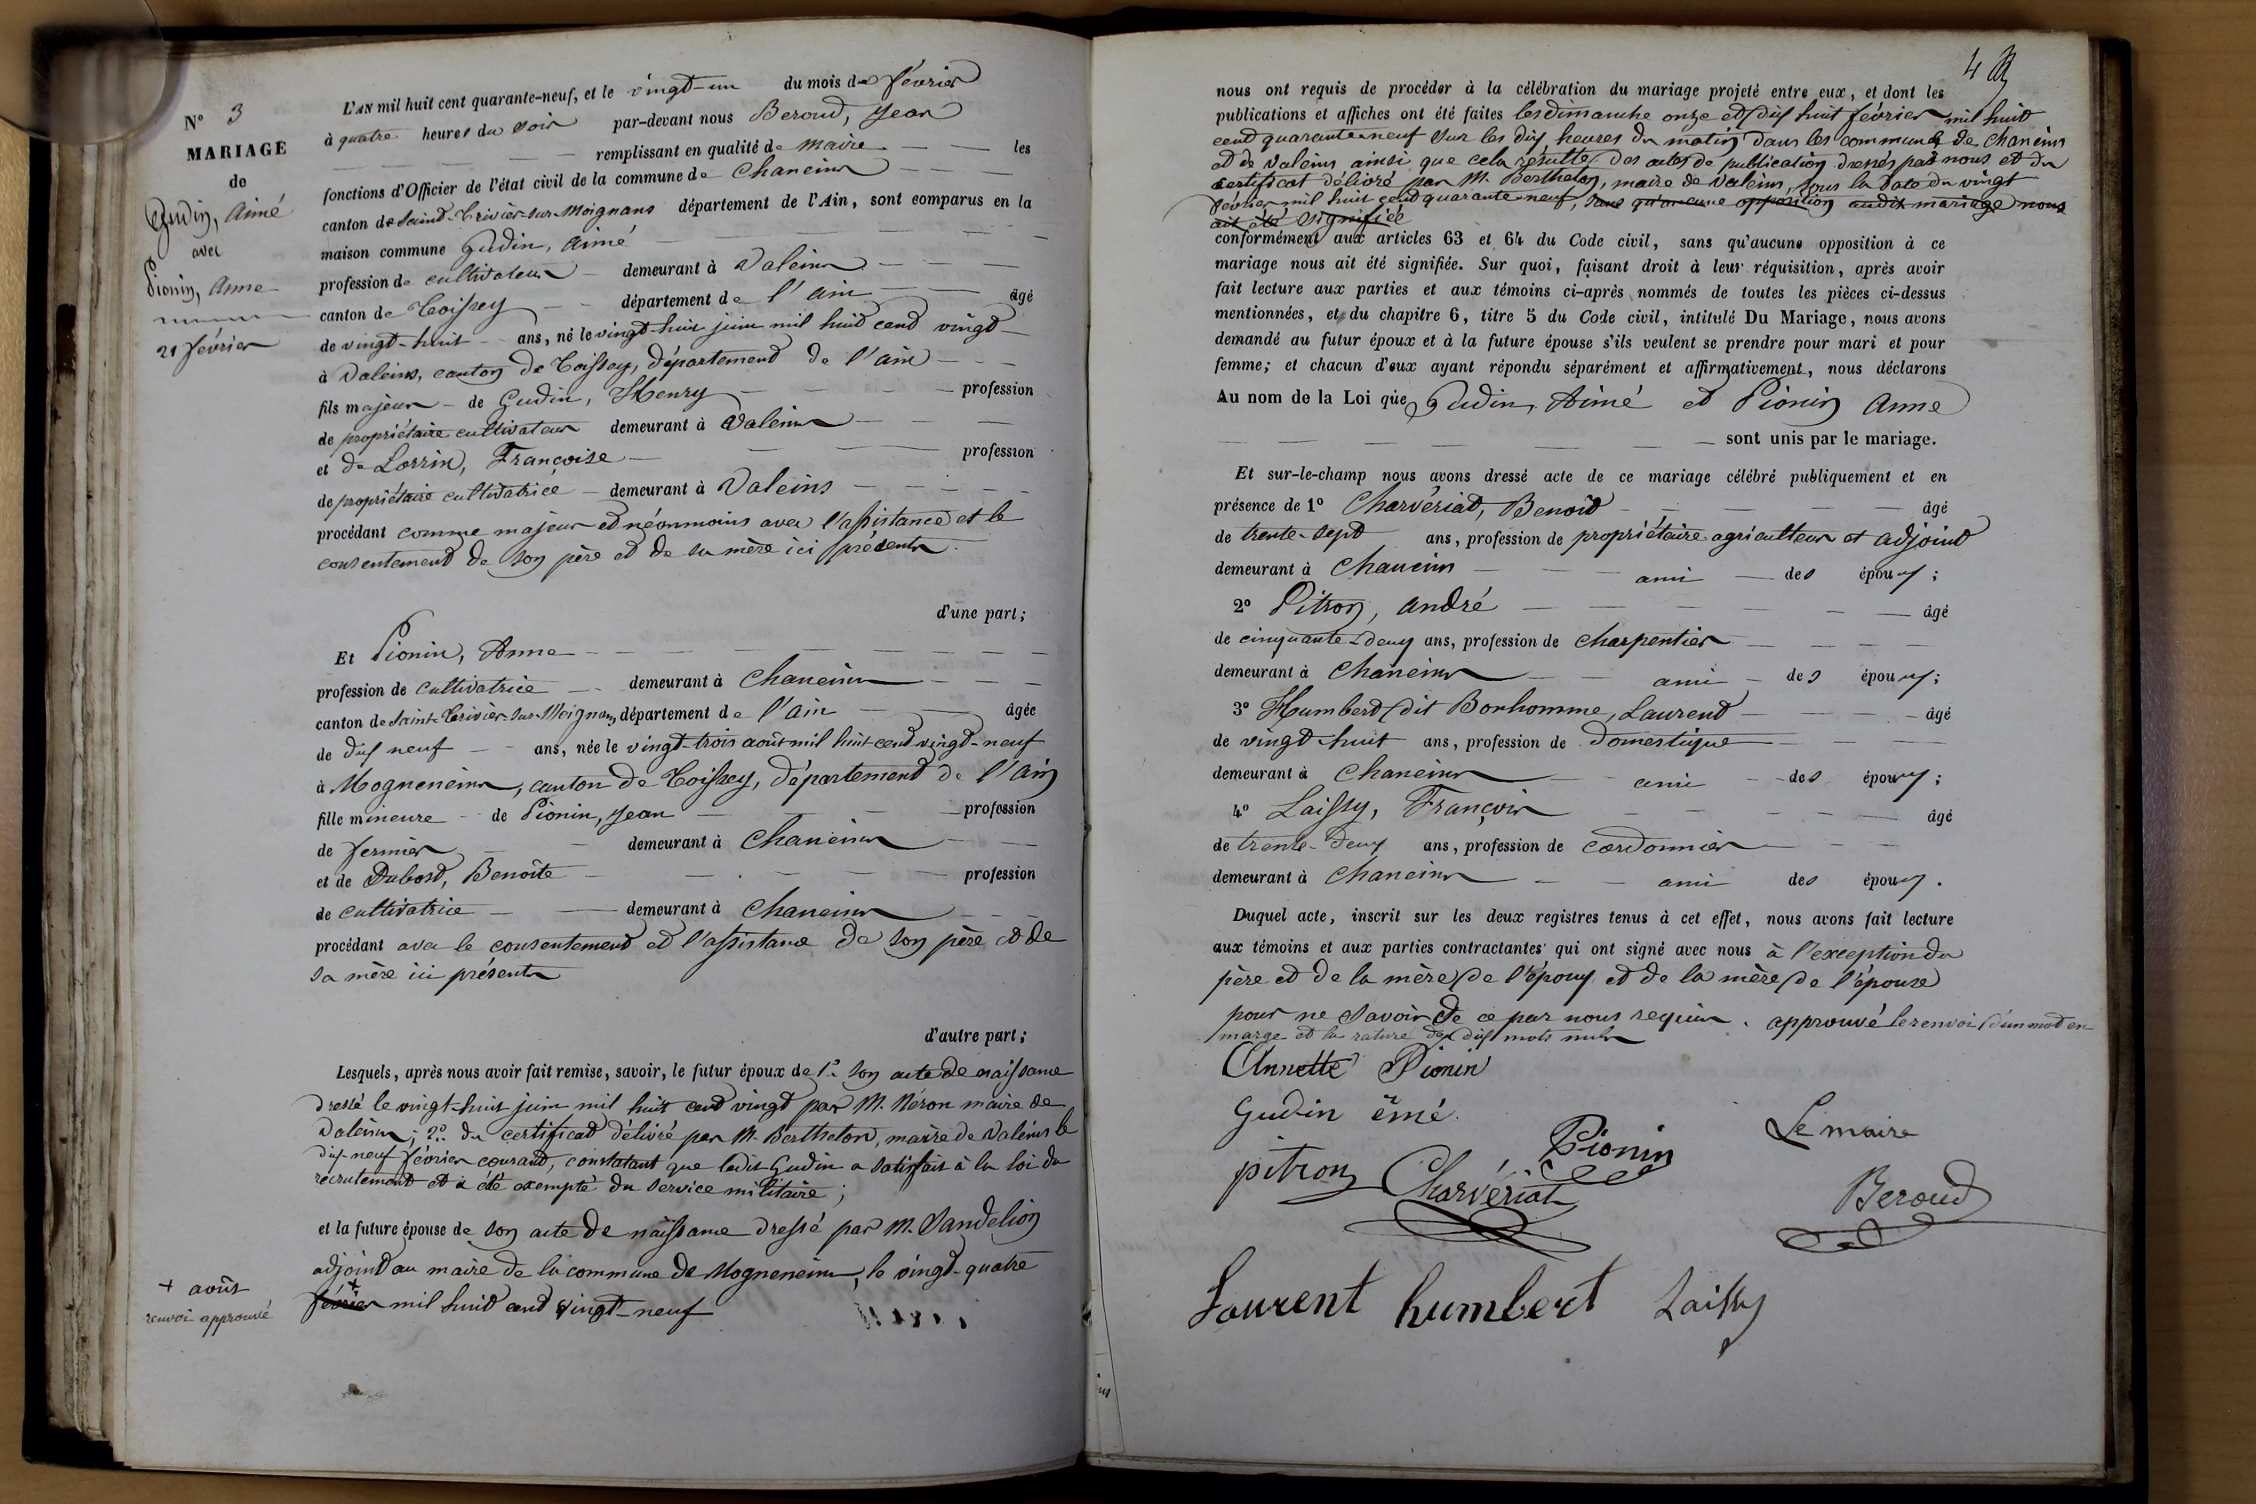 N° 3
MARIAGE
de
Gudin, Aimé
avec
Pionin, Anne
21 février
L'AN mil huit cent quarante-neuf, et le vingt-un du mois de février
à quatre heures du soir par-devant nous Beroud, Jean
remplissant en qualité de maire les
fonctions d'Officier de l'état civil de la commune de Chaneins
canton de Saint-Trivier-sur-Moignans département de l'Ain, sont comparus en la
maison commune Gudin, Aimé
profession de cultivateur demeurant à Valeins
canton de Thoissey département de l'Ain âgé
de vingt-huit ans, né le vingt-huit juin mil huit cent vingt
à Valeins, canton de Thoissey, département de l'ain
fils majeur de Gudin, Henry profession
de propriétaire cultivateur demeurant à Valeins
et de Lorrin, Françoise profession
de propriétaire cultivatrice demeurant à Valeins
procédant comme majeur et néonmoins avec l'assistance et le
consentement de son père et de sa mère ici présents
d'une part;
Et Pionin, Anne
profession de cultivatrice demeurant à Chaneins
canton de Saint-Trivier-sur-Moignans département de l'Ain âgée
de dix neuf ans, née le vingt-trois août mil huit cent vingt-neuf
à Mogneneins, canton de Thoissey, département de l'Ain
fille mineure de Pionin, Jean profession
de fermier demeurant à Chaneins
et de Dubost, Benoîte profession
de cultivatrice demeurant à Chaneins
procédant avec le consentement et l'assistance de son père et de
sa mère ici présents
d'autre part;
Lesquels, après nous avoir fait remise, savoir, le futur époux de 1° son acte de naissance
dressé le vingt-huit juin mil huit cent vingt par M. Néron maire de
Valeins; 2° du certificat délivré par M. Berthelon, maire de Valeins le
dix-neuf février courant, constatant que ledit Gudin a satisfait à la loi du
recrutement et a été exempté du service militaire;
et la future épouse de son acte de naissance dressé par M. Sandelion
adjoint au maire de la commune de Mogneneins, le vingt-quatre
+ août
renvoi approuvé
février + mil huit cent vingt-neuf
4
nous ont requis de procéder à la célébration du mariage projeté entre eux, et dont les
publications et affiches ont été faites les dimanche onze et dix huit février mil huit
cent quarante-neuf sur les dix heures du matin dans les communes de Chaneins
et de Valeins ainsi que cela résulte des actes de publication dressés par nous et du
certificat délivré par M. Berthelon, maire de Valeins, sous la date du vingt
février mil huit cent quarante-neuf, sans qu'aucune opposition audit mariage nous
ait été signifiée
conformément aux articles 63 et 64 du Code civil, sans qu'aucune opposition à ce
mariage nous ait été signifiée. Sur quoi, faisant droit à leur réquisition, après avoir
fait lecture aux parties et aux témoins ci-après nommés de toutes les pièces ci-dessus
mentionnées, et du chapitre 6, titre 5 du Code civil, intitulé Du Mariage, nous avons
demandé au futur époux et à la future épouse s'ils veulent se prendre pour mari et pour
femme; et chacun d'eux ayant répondu séparément et affirmativement, nous déclarons
Au nom de la Loi que Gudin, Aimé et Pionin Anne
sont unis par le mariage.
Et sur-le-champ nous avons dressé acte de ce mariage célébré publiquement et en
présence de 1° Charvériat, Benoît âgé
de trente-sept ans, profession de propriétaire agriculteur et adjoint
demeurant à Chaneins ami des époux;
2° Pitron, André âgé
de cinquante-deux ans, profession de charpentier
demeurant à Chaneins ami des époux;
3° Humbert dit Bonhomme, Laurent âgé
de vingt-huit ans, profession de domestique
demeurant à Chaneins ami des époux;
4° Laissy, François âgé
de trente-deux ans, profession de cordonnier
demeurant à Chaneins ami des époux.
Duquel acte, inscrit sur les deux registres tenus à cet effet, nous avons fait lecture
aux témoins et aux parties contractantes qui ont signé avec nous à l'exception du
père et de la mère de l'époux et de la mère de l'épouse
pour ne savoir de ce par nous requis. approuvé le renvoi d'un mot en
marge et la rature de dix mots nuls
Annette Pionin
Gudin émé
Pionin
Le maire
pitron
Charvériat
Beroud
Laurent humbert
Laissy